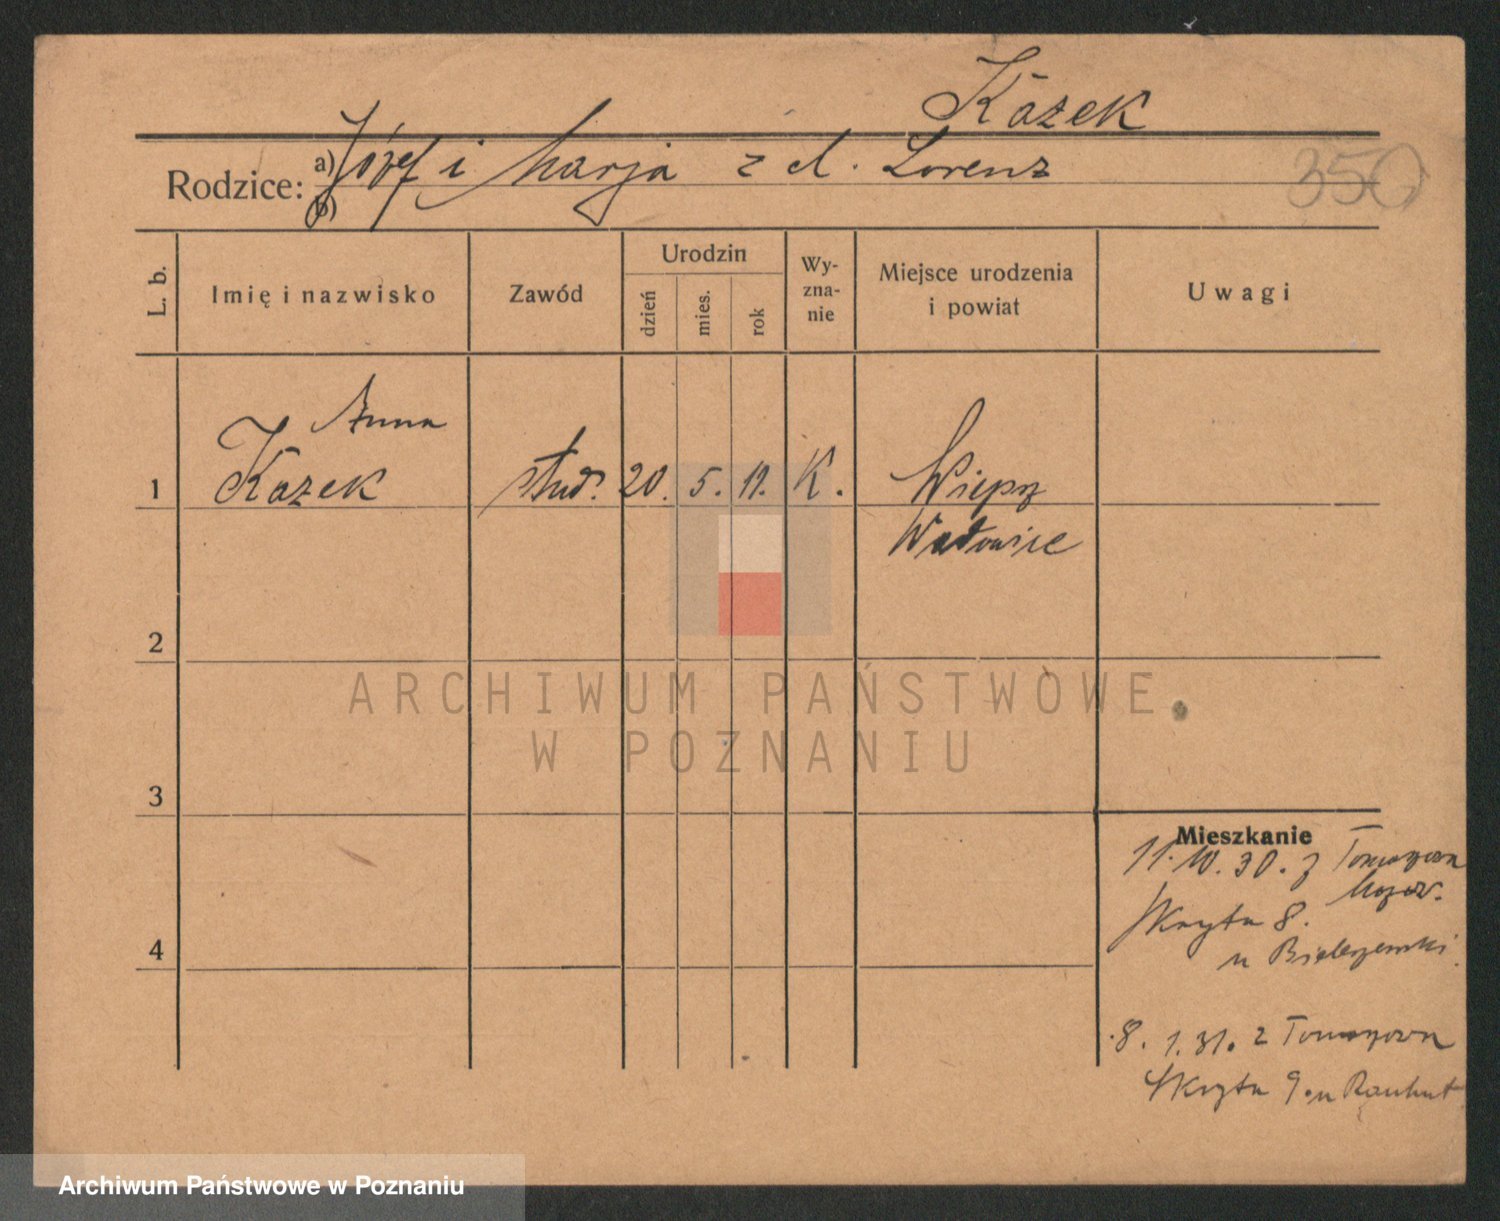 Kazek
Rodzice: a) Józef i Marja z d. Lorenz
b)
350
L. b.
Imię i nazwisko
Zawód
Urodzin
dzień
mies.
rok
Wy-
zna-
nie
Miejsce urodzenia
i powiat
Uwagi
Anna
1 Kazek stud. 20. 5. 11. K. Wieprz
Wadowice
2
ARCHIWUM PAŃSTWOWE
W POZNANIU
3
4
Mieszkanie
11.10.30. z Tomaszowa
Mazow.
Skryta 8.
u
8. 1.31. z Tomaszowa
Skryta 9. u Rauhut
Archiwum Państwowe w Poznaniu